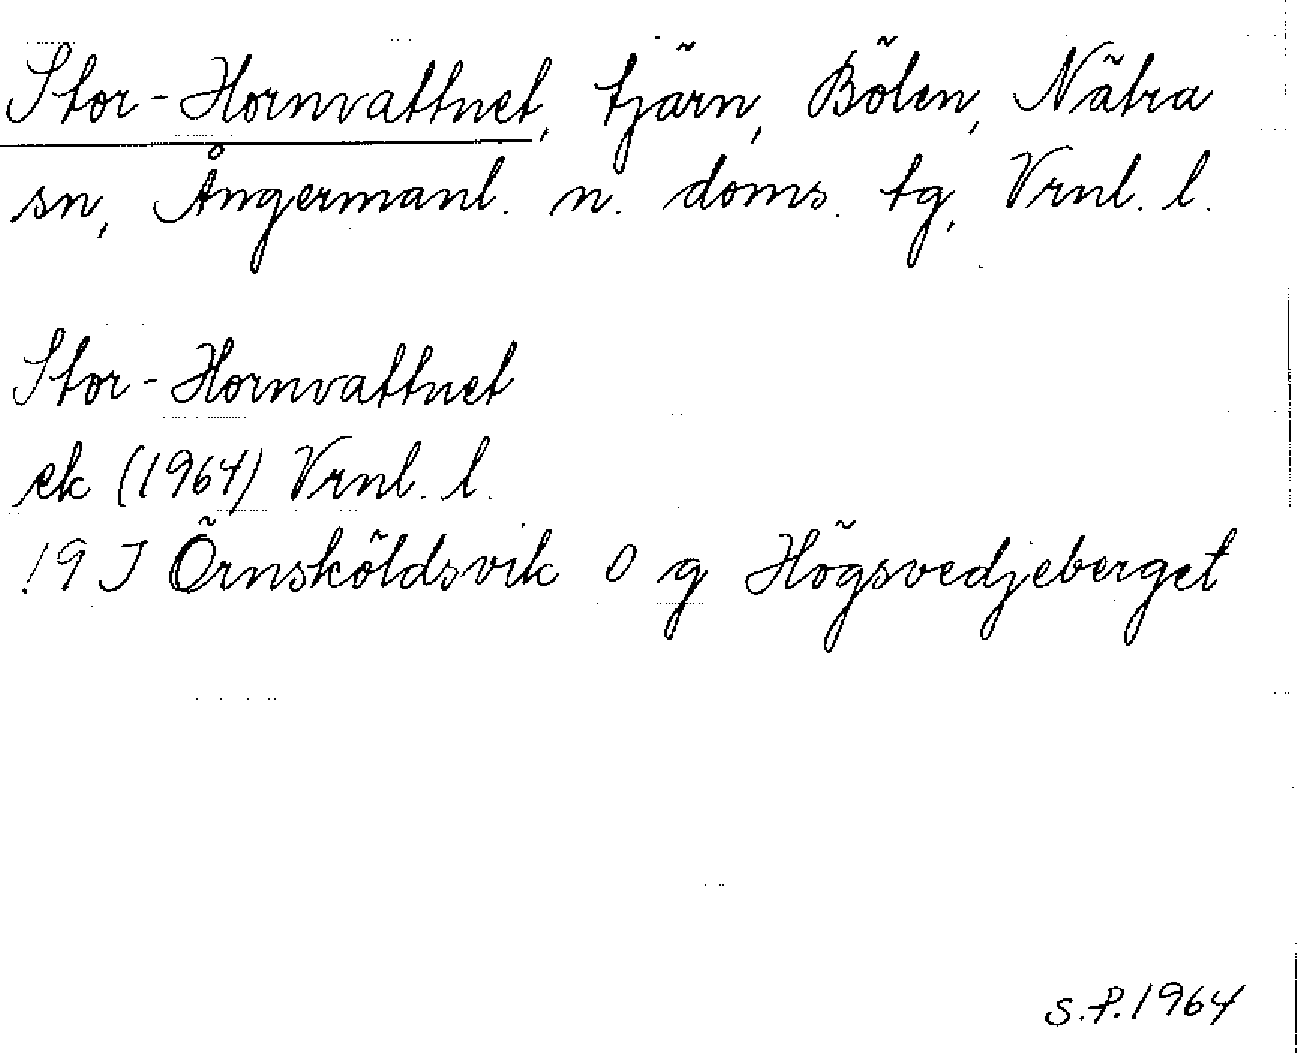 Stor-Hornvattnet, tjärn, Bölen, Nätra
sn, Ångermanl. n. doms. tg, Vrnl. l.
Stor-Hornvattnet
ek (1964) Vrnl. l.
19 J Örnsköldsvik 0 g Högsvedjeberget
S.P. 1964